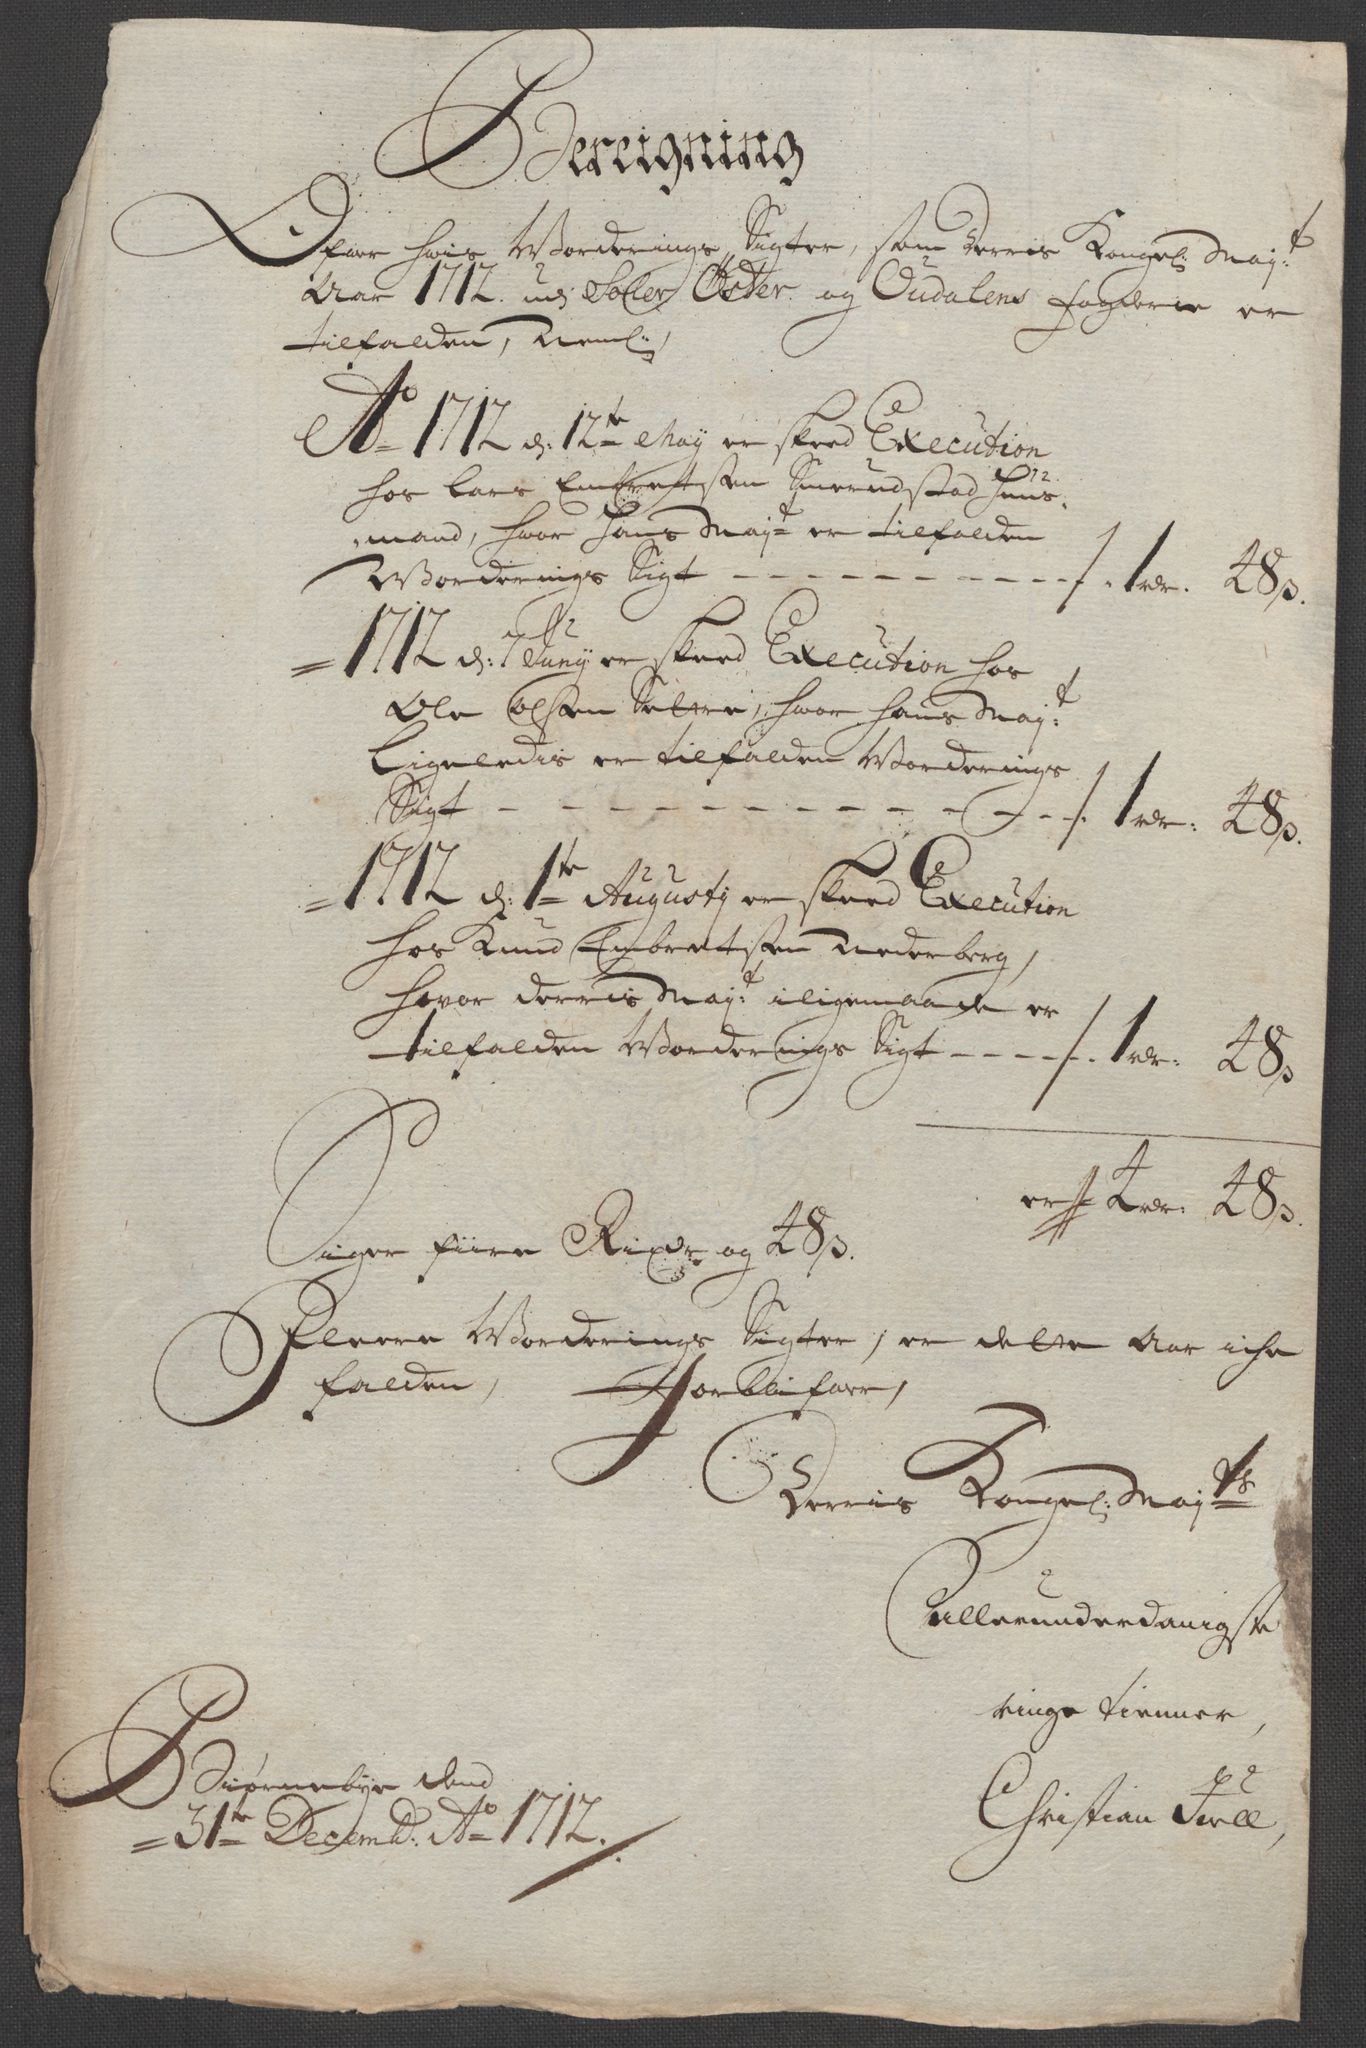 Bereigning
Ofver hvis Worderings Sigter, som Derris Kongel: Maj:t
Aar 1712. udj Soller Øster. og Oudalens fogderie er
tilfalden, Neml:
Ao 1712 d: 12te Maij er skeed Execution
hos Lars Embretsen Smerudstad Huus-
mand, hvor Hans Maj:t er tilfalden
Worderings Sigt - - - - - - - - - - 1 rdr. 48 s.
= 1712 d: 7 Junij er skeed Execution hos
Ole Olsen Sætre, hvor Hans Maj:t
Ligeledis er tilfalden Worderings
Sigt - - - - - - - - - - - - 1 rdr: 48 s.
= 1712 d: 1te Augustij er skeed Execution
hos Knud Embretsen Nederberg,
hvor Derris Maj:t iligemaade er
tilfalden Worderings Sigt - - - - - 1 rdr: 48 s
er 4 rdr: 48 s.
Siger fiire Rixdr og 48 s.
Fleere Worderings Sigter, er dette Aar iche
falden, Forblifver,
Derris Kongel: Maj:ts
allerunderdanigste
ringe tienner,
Biørnebye dend
Christian
= 31te Decemb: Ao 1712.